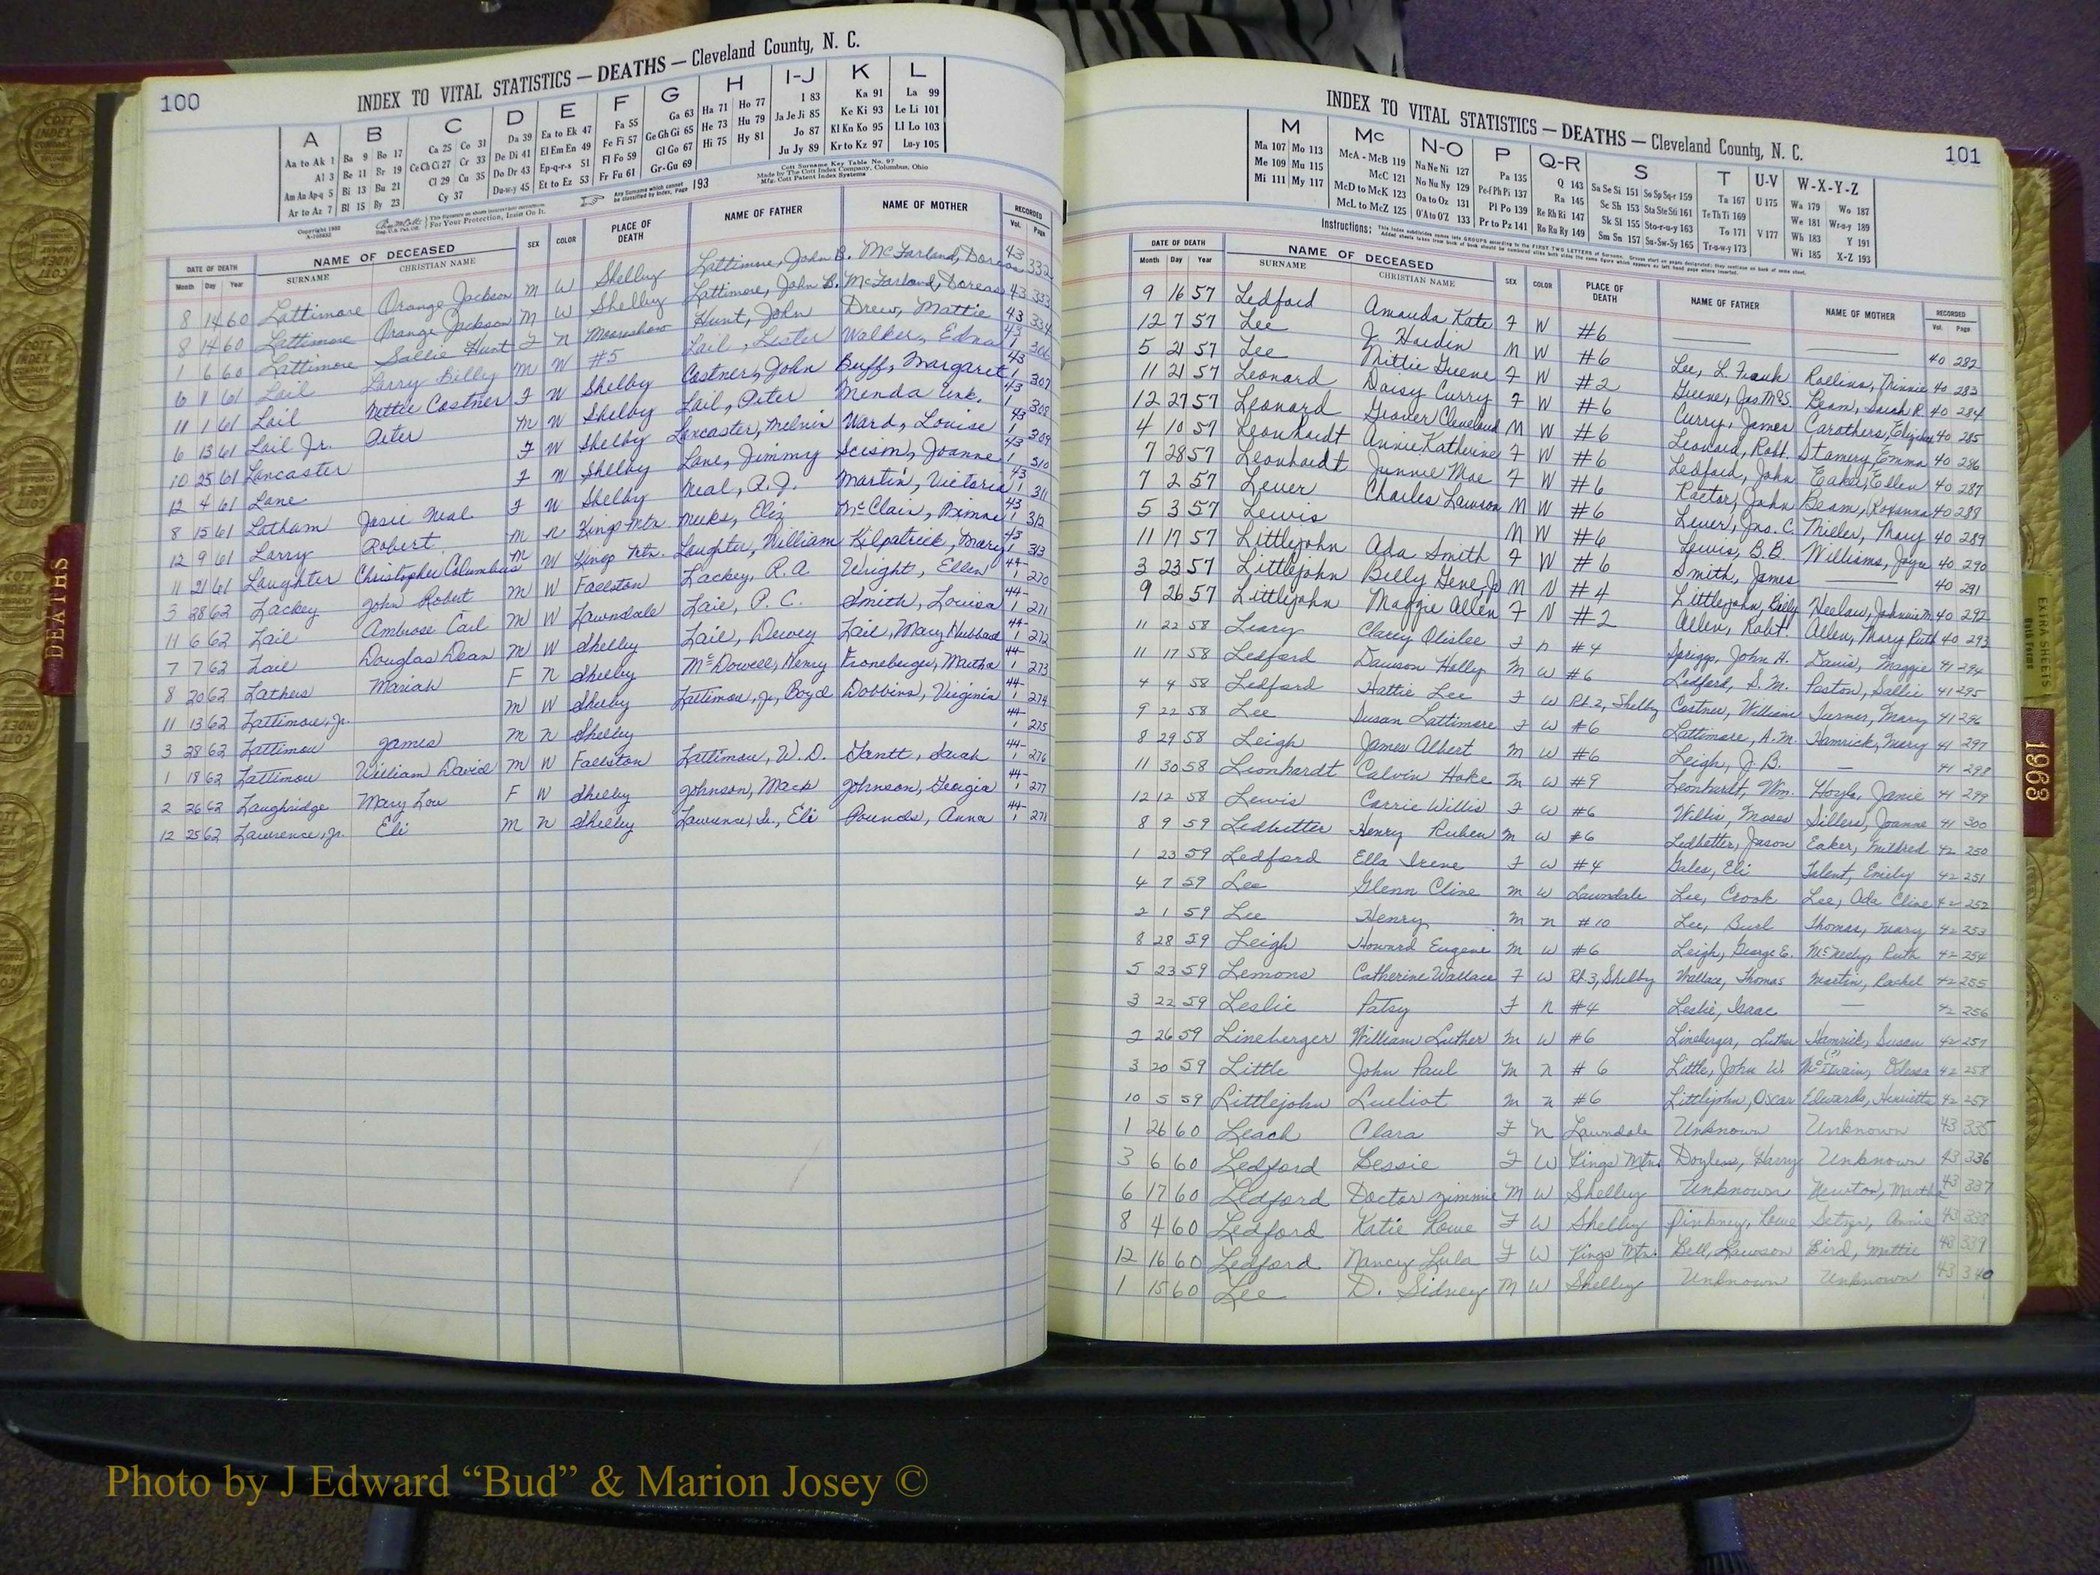 100
INDEX TO VITAL STATISTICS — DEATHS — Cleveland County, N. C.
A B C D E F G H I-J K L
Aa to Ak 1 Ba 9 Bo 17 Ca 25 Co 31 Da 39 Ea to Ek 47 Fa 55 Ga 63 Ha 71 Ho 77 I 83 Ka 91 La 99
Al 3 Be 11 Br 19 Ce Ch Ci 27 Cr 33 De Di 41 El Em En 49 Fe Fi 57 Ge Gh Gi 65 He 73 Hu 79 Ja Je Ji 85 Ke Ki 93 Le Li 101
Am An Ap-q 5 Bi 13 Bu 21 Cl 29 Cu 35 Do Dr 43 Ep-q-r-s 51 Fl Fo 59 Gl Go 67 Hi 75 Hy 81 Jo 87 Kl Kn Ko 95 Ll Lo 103
Ar to Az 7 Bl 15 By 23 Cy 37 Du-w-y 45 Et to Ez 53 Fr Fu 61 Gr-Gu 69 Ju Jy 89 Kr to Kz 97 Lu-y 105
For Your Protection, Insist On It.
Any Surname which cannot be classified by Index, Page 193
Cott Surname Key Table No. 97
Made by The Cott Index Company, Columbus, Ohio
Mfg. Cott Patent Index Systems
DATE OF DEATH NAME OF DECEASED SEX COLOR PLACE OF DEATH NAME OF FATHER NAME OF MOTHER RECORDED
Month Day Year SURNAME CHRISTIAN NAME Vol. Page
8 14 60 Lattimore Orange Jackson M W Shelby Lattimore, John B. McFarland, Dorcas 43 332
8 14 60 Lattimore Orange Jackson M W Shelby Lattimore, John B. McFarland, Dorcas 43 333
1 6 60 Lattimore Sallie Hunt F N Mooresboro Hunt, John Drew, Mattie 43 334
6 1 61 Lail Larry Billy M W #5 Lail, Lester Walker, Edna 43 306
11 1 61 Lail Nettie Costner F W Shelby Costner, John Buff, Margaret 43 307
6 13 61 Lail Jr. Peter M W Shelby Lail, Peter Menda Unk. 43 308
10 25 61 Lancaster F W Shelby Lancaster, Melvin Ward, Louise 43 309
12 4 61 Lane F W Shelby Lane, Jimmy Scism, Joanne 43 310
8 15 61 Latham Josie Neal F W Shelby Neal, R.J. Martin, Victoria 43 311
12 9 61 Larry Robert M N Kings Mtn Meeks, Eliz McClain, 43 312
11 21 61 Laughter Christopher Columbus M W Kings Mtn. Laughter, William Kilpatrick, Mary 43 313
3 28 62 Lackey John Robert M W Fallston Lackey, R.A. Wright, Ellen 44 270
11 6 62 Lail Ambrose Carl M W Lawndale Lail, P. C. Smith, Louisa 44 271
7 7 62 Lail Douglas Dean M W Shelby Lail, Dewey Lail, Mary Hubbard 44 272
8 20 62 Lathers Mariah F N Shelby McDowell, Henry Froneberger, Martha 44 273
11 13 62 Lattimore, Jr. M W Shelby Lattimore, Jr, Boyd Dobbins, Virginia 44 274
3 28 62 Lattimore James M N Shelby 44 275
1 18 62 Lattimore William David M W Fallston Lattimore, W. D. Gantt, Sarah 44 276
2 26 62 Laughridge Mary Lou F W Shelby Johnson, Mack Johnson, Georgia 44 277
12 25 62 Lawrence, Jr. Eli M N Shelby Lawrence, Sr., Eli Pounds, Anna 44 278
101
INDEX TO VITAL STATISTICS — DEATHS — Cleveland County, N. C.
M Mc N-O P Q-R S T U-V W-X-Y-Z
Ma 107 Mo 113 McA - McB 119 Na Ne Ni 127 Pa 135 Q 143 Sa Se Si 151 So Sp Sq-r 159 Ta 167 U 175 Wa 179 Wo 187
Me 109 Mu 115 McC 121 No Nu Ny 129 Pe-f Ph Pi 137 Ra 145 Sc Sh 153 Sta Ste Sti 161 Te Th Ti 169 We 181 Wr-u-y 189
Mi 111 My 117 McD to McK 123 Oa to Oz 131 Pl Po 139 Re Rh Ri 147 Sk Sl 155 Sto-r-u-y 163 To 171 V 177 Wh 183 Y 191
McL to McZ 125 O'A to O'Z 133 Pr to Pz 141 Ro Ru Ry 149 Sm Sn 157 Su-Sw-Sy 165 Tr-u-w-y 173 Wi 185 X-Z 193
DATE OF DEATH NAME OF DECEASED SEX COLOR PLACE OF DEATH NAME OF FATHER NAME OF MOTHER RECORDED
Month Day Year SURNAME CHRISTIAN NAME Vol. Page
9 16 57 Ledford Amanda Kate F W #6 40 282
12 7 57 Lee J. Hardin M W #6 Lee, L. Frank Rollins, Minnie 40 283
5 21 57 Lee Nittie Greene F W #2 Greene, Jas. McS. Beam, Sarah R. 40 284
11 21 57 Leonard Daisy Curry F W #6 Curry, James Carothers, Elizabeth 40 285
12 27 57 Leonard Grover Cleveland M W #6 Leonard, Robt. Stamery, Emma 40 286
4 10 57 Leonhardt Annie Katherine F W #6 Ledford, John Eaker, Ellen 40 287
7 28 57 Leonhardt Junnie Mae F W #6 Rector, John Beam, Roxanna 40 288
7 2 57 Lever Charles Lawson M W #6 Lever, Jas. C. Miller, Mary 40 289
5 3 57 Lewis M W #6 Lewis, B.B. Williams, Joyce 40 290
11 17 57 Littlejohn Ada Smith F W #6 Smith, James 40 291
3 23 57 Littlejohn Billy Gene, Jr M N #4 Littlejohn, Billy Heelaw, Johnnie M. 40 292
9 26 57 Littlejohn Maggie Allen F N #2 Allen, Robt. Allen, Mary Ruth 40 293
11 22 58 Leary Clacey Otislee F N #4 Spriggs, John H. Davis, Maggie 41 294
11 17 58 Ledford Dawson Holly M W #6 Ledford, S. M. Poston, Sallie 41 295
4 4 58 Ledford Hattie Lee F W Rt. 2, Shelby Costner, William Turner, Mary 41 296
9 22 58 Lee Susan Lattimore F W #6 Lattimore, A.M. Hamrick, Mary 41 297
8 29 58 Leigh James Albert M W #6 Leigh, J. B. — 41 298
11 30 58 Leonhardt Calvin Hoke M W #9 Leonhardt, Wm. Hoyle, Janie 41 299
12 12 58 Lewis Carrie Willis F W #6 Willis, Moses Sillers, Joanne 41 300
8 9 59 Ledbetter Henry Ruben M W #6 Ledbetter, Jason Eaker, Mildred 42 250
1 23 59 Ledford Ella Irene F W #4 Gales, Eli Talent, Emiley 42 251
4 7 59 Lee Glenn Cline M W Lawndale Lee, Crook Lee, Ada Cline 42 252
2 1 59 Lee Henry M N #10 Lee, Burl Thomas, Mary 42 253
8 28 59 Leigh Howard Eugene M W #6 Leigh, George E. McNeely, Ruth 42 254
5 23 59 Lemons Catherine Wallace F W Rt 3, Shelby Wallace, Thomas Martin, Rachel 42 255
3 22 59 Leslie Patsy F N #4 Leslie, Isaac — 42 256
2 26 59 Lineberger William Luther M W #6 Lineberger, Luther Hamrick, Susan 42 257
3 20 59 Little John Paul M N #6 Little, John W. McElwain, (?) Odessa 42 258
10 5 59 Littlejohn Lueliot M N #6 Littlejohn, Oscar Edwards, Henrietta 42 259
1 26 60 Leach Clara F N Lawndale Unknown Unknown 43 335
3 6 60 Ledford Bessie F W Kings Mtn. Harry Unknown 43 336
6 17 60 Ledford Doctor Zimmie M W Shelby Unknown Newton, Martha 43 337
8 4 60 Ledford Katie Rowe F W Shelby Pinkney, Rowe Setzer, Annie 43 338
12 16 60 Ledford Nancy Lula F W Kings Mtn. Bell, Lawson Bird, Mattie 43 339
1 15 60 Lee D. Sidney M W Shelby Unknown Unknown 43 340
DEATHS
EXTRA SHEETS
1963
Photo by J Edward “Bud” & Marion Josey ©